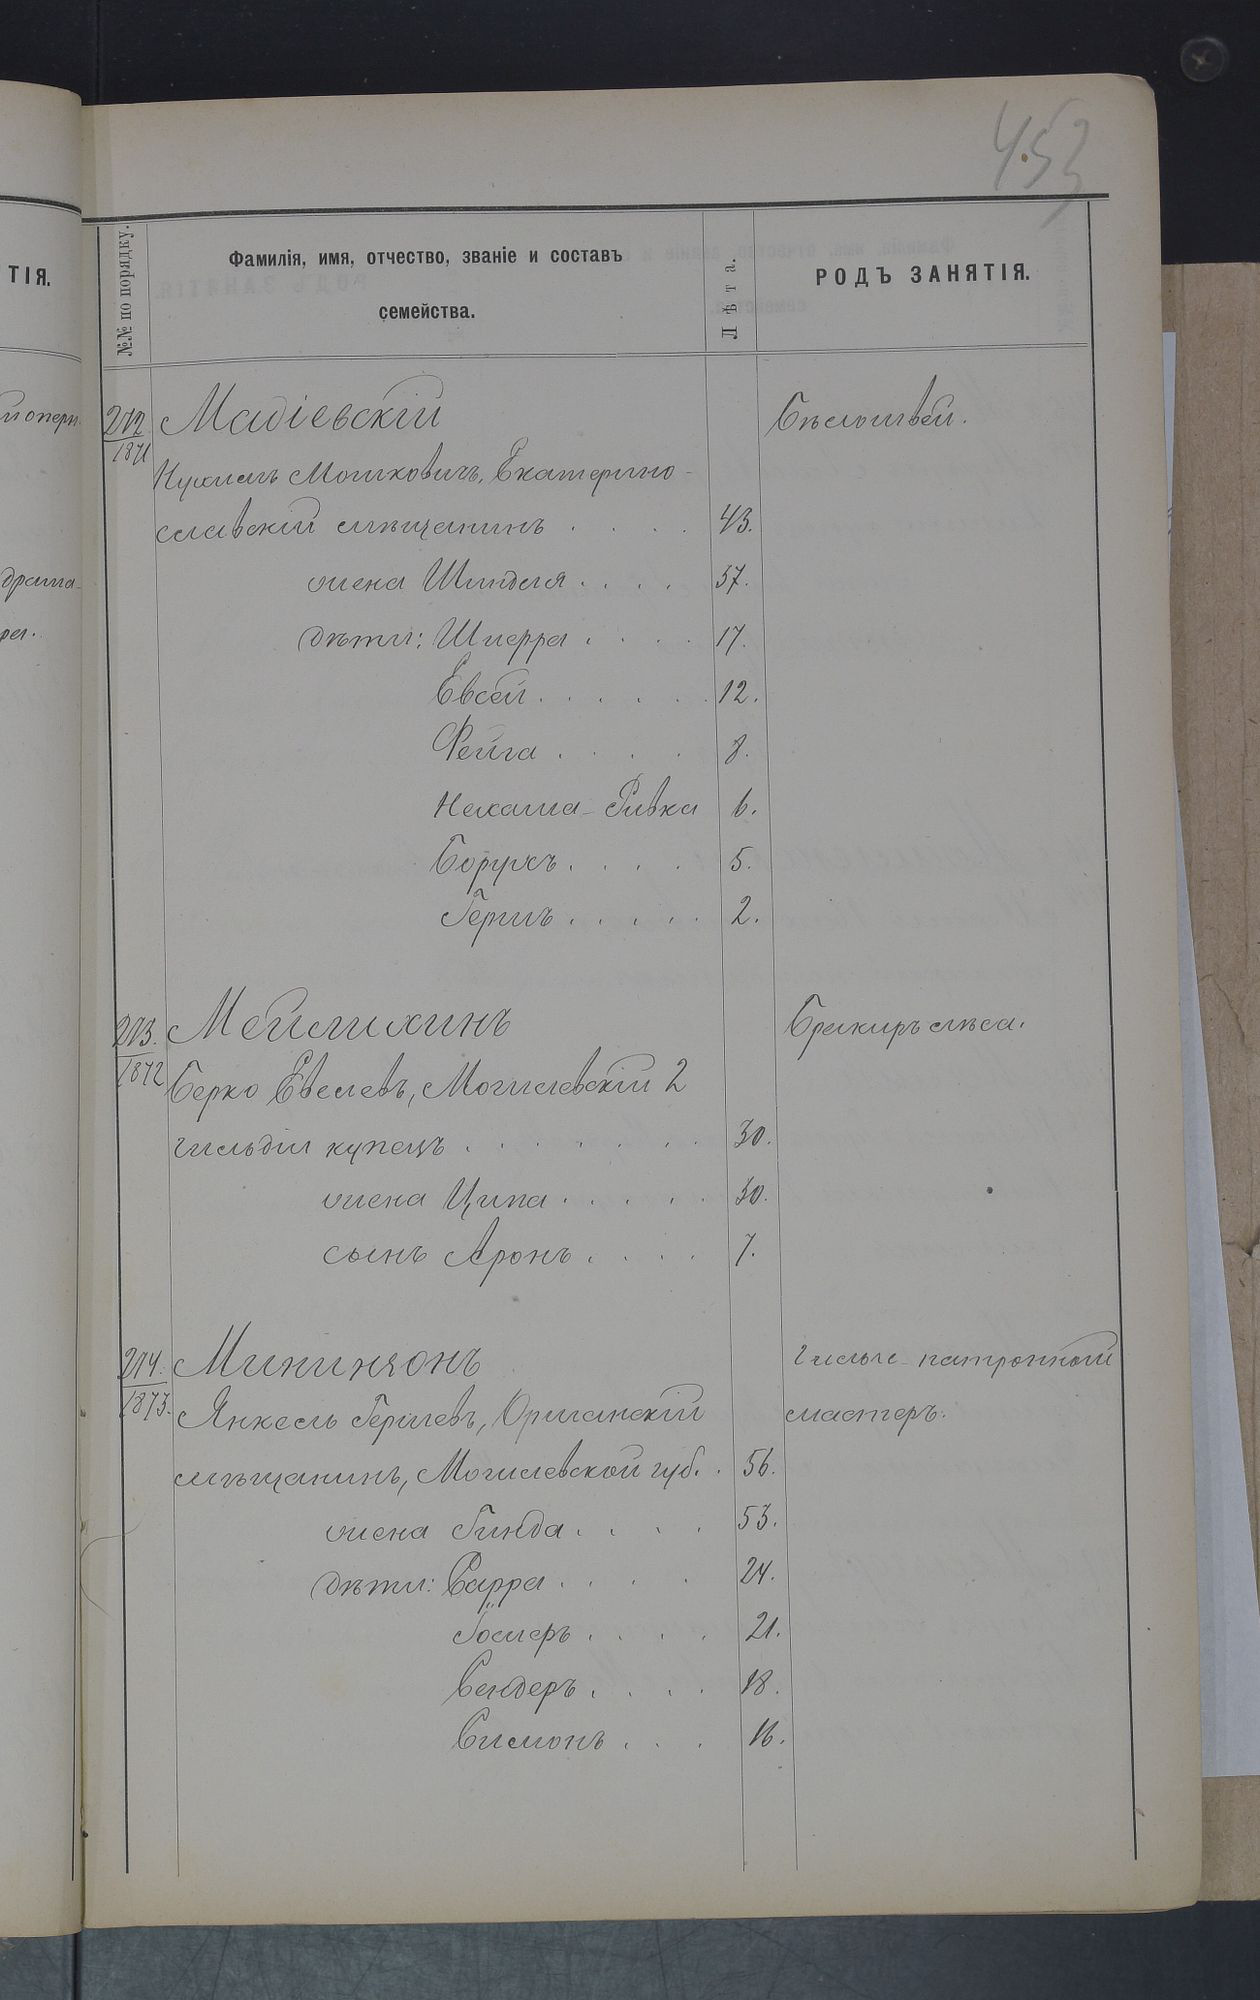 453
ТІЯ.
№№ по порядку.
Фамилія, имя, отчество, званіе и составъ
семейства.
Лѣта.
РОДЪ ЗАНЯТІЯ.
212 Мадіевскій Бѣлошвей.
1871
Нухимъ Мошковичъ, Екатерино-
славскій мѣщанинъ . . . . 43.
жена Шиндля . . . . 37.
дѣти: Шиерра . . . . 17.
Евсей . . . . . . 12.
Фейга . . . . 8.
Нехама-Ривка 6.
Борухъ . . . . 5.
Гершъ . . . . . 2.
213. Мейлихинъ Бракиръ лѣса.
1872
Берко Евелевъ, Могилевскій 2
гильдіи купецъ . . . . . . . 30.
жена Ципа . . . . . 30.
сынъ Аронъ . . . . 7.
214. Мининзонъ Гильзо-патронный
1873. Янкель Гершевъ, Оршанскій мастеръ.
мѣщанинъ, Могилевской губ. . 56.
жена Гинда . . . . 53.
дѣти: Сарра . . . . 24.
. . . . 21.
Сендеръ . . . . 18.
Симонъ . . . 16.